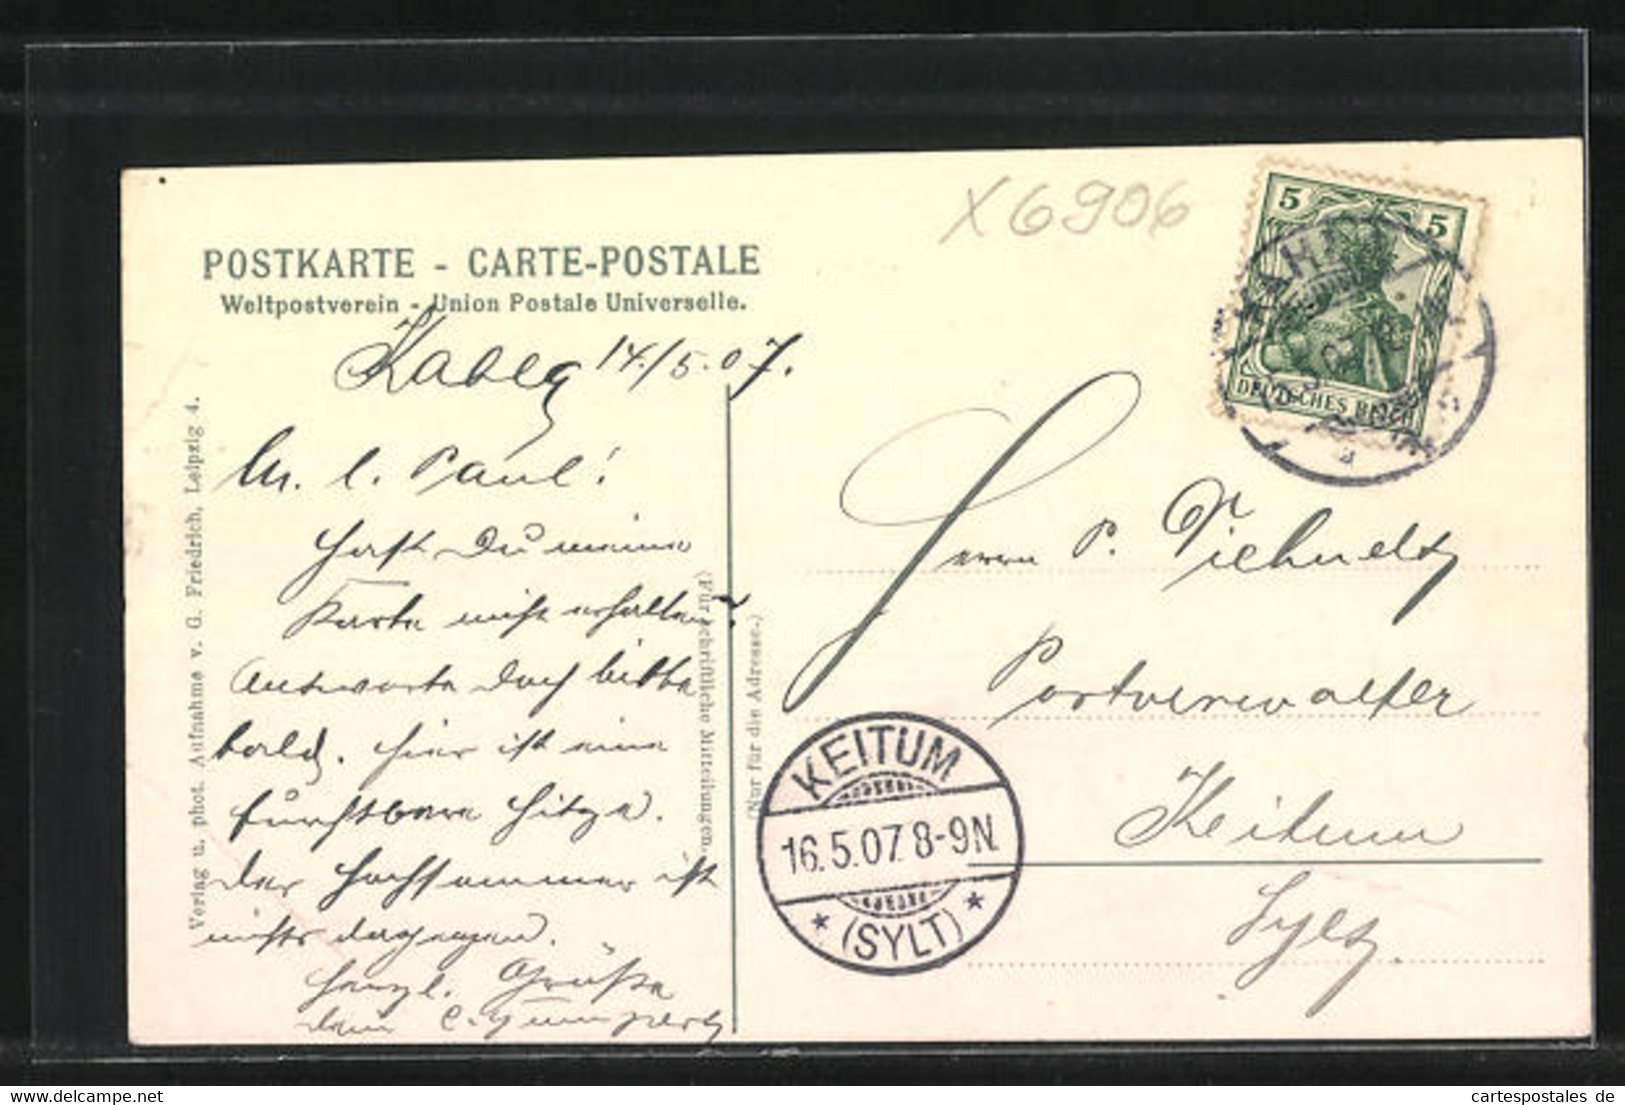 X6906
5 5
DEUTSCHES REICH
POSTKARTE - CARTE-POSTALE
Weltpostverein - Union Postale Universelle.
14/5.07.
M. l. Paul!
Hast Du meine
Karte nicht erhalten?
Antworte doch bitte
bald. Hier ist eine
furchtbare Hitze.
Der Hochsommer ist
nichts dagegen.
Herzl. Grüße
Dein
Verlag u. phot. Aufnahme v. G. Friedrich, Leipzig 4.
(Für schriftliche Mitteilungen.)
(Nur für die Adresse.)
Herrn P.
Postverwalter
Keitum
Sylt.
KEITUM
16.5.07. 8-9N.
* (SYLT) *
www.cartespostales.com
cartespostales de